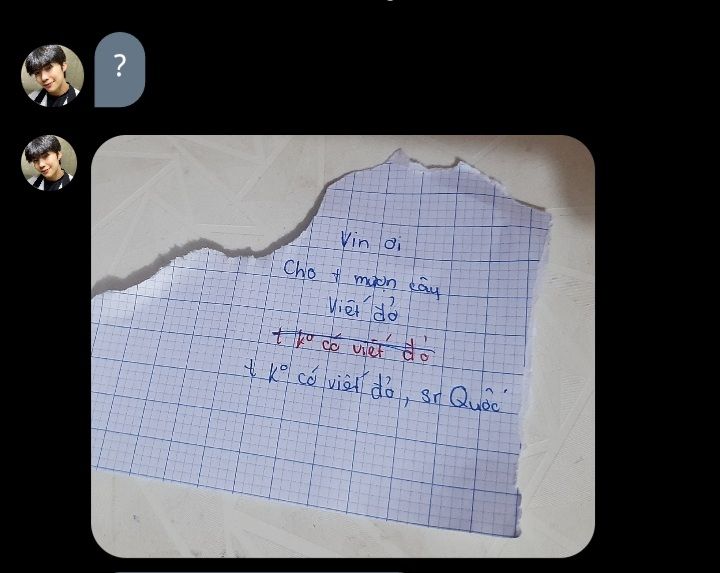 ?
Vin ơi
Cho t mượn cây
Viết đỏ
t kº có viết đỏ
t kº có viết đỏ, sr Quốc